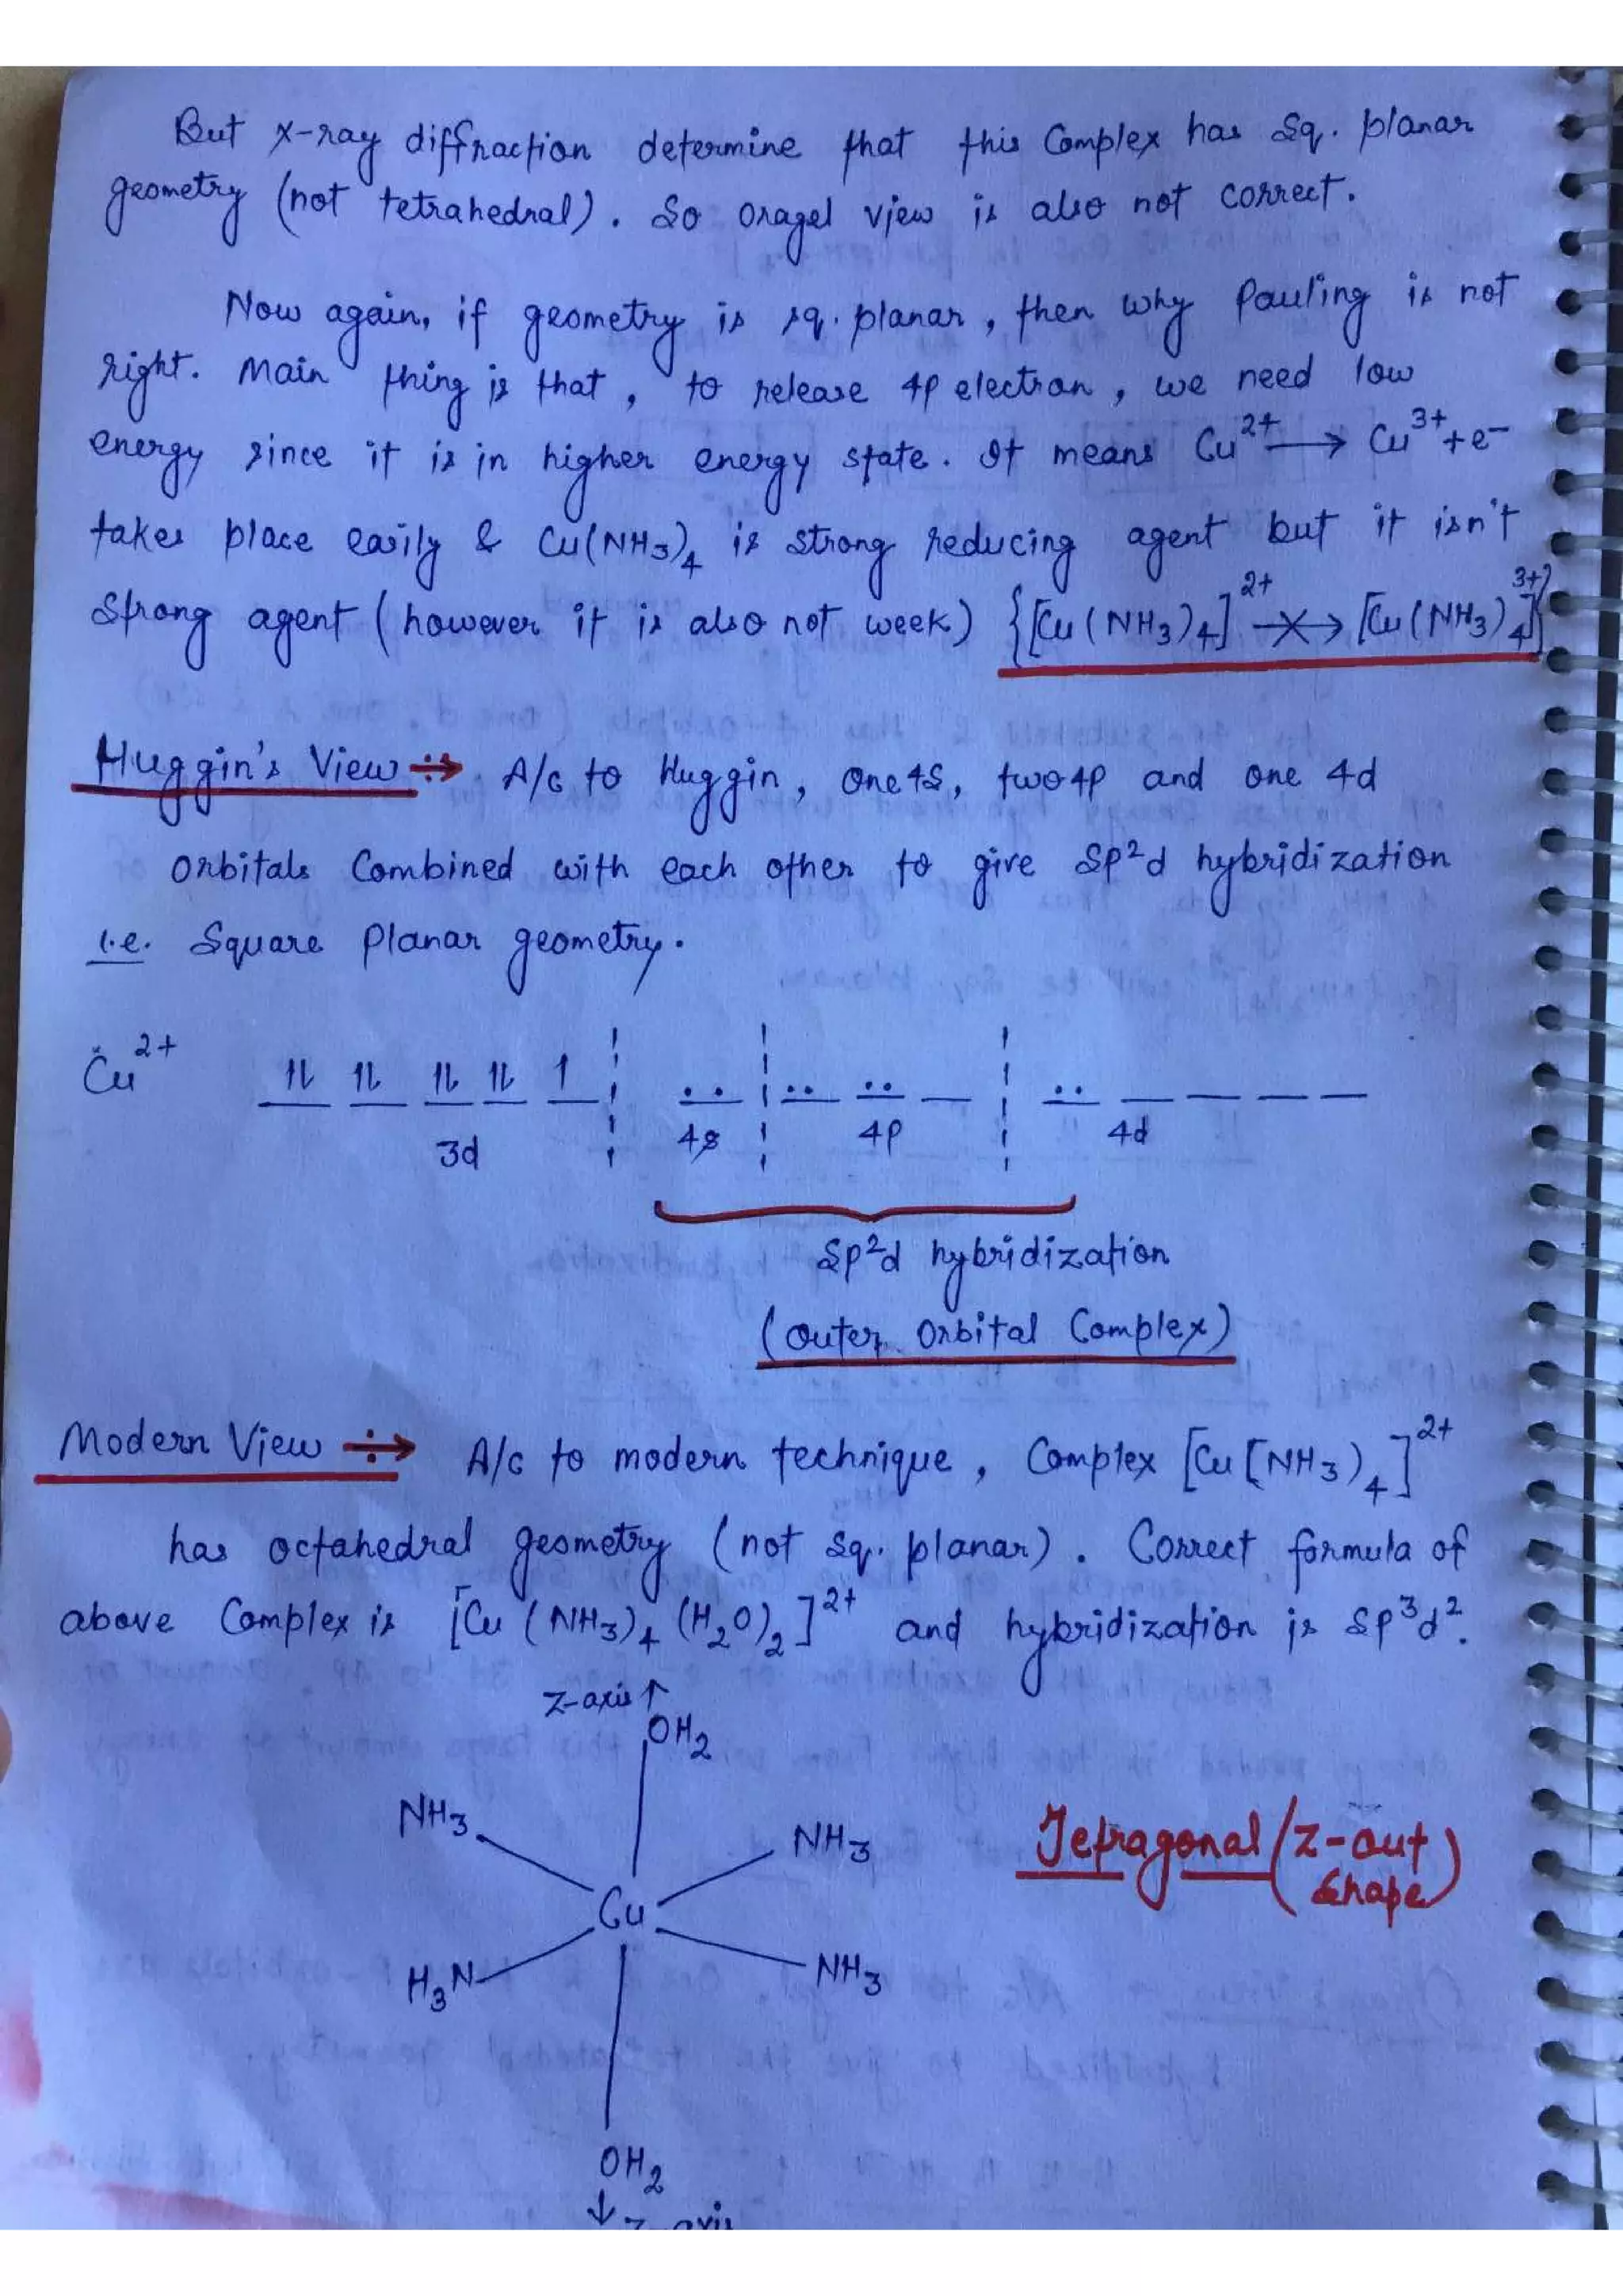 But X-ray diffraction determine that this Complex has Sq. planar
geometry (not tetrahedral). So oragel view is also not correct.
Now again, if geometry is sq. planar, then why Pauling is not
right. Main thing is that, to release 4p electron, we need low
energy since it is in higher energy state. It means Cu²⁺ ⟶ Cu³⁺+e⁻
takes place easily & Cu(NH₃)₄ is strong reducing agent but it isn't
Strong agent (however it is also not week) {[Cu(NH₃)₄]²⁺ -X-> [Cu(NH₃)₄]³⁺}
Huggin's View ÷→ A/c to Huggin, one 4S, two 4p and one 4d
orbitals Combined with each other to give Sp²d hybridization
i.e. Square Planar geometry.
Cu²⁺ 1L 1L 1L 1L 1
3d 4s 4p 4d
Sp²d hybridization
(outer orbital Complex)
Modern View ÷→ A/c to modern technique, Complex [Cu[NH₃)₄]²⁺
has octahedral geometry (not sq. planar). Correct formula of
above Complex is [Cu(NH₃)₄(H₂O)₂]²⁺ and hybridization is sp³d².
Z-axis ↑
OH₂
NH₃ NH₃
Tetragonal (Z-out
Shape)
Cu
H₃N NH₃
OH₂
↓ Z-axis